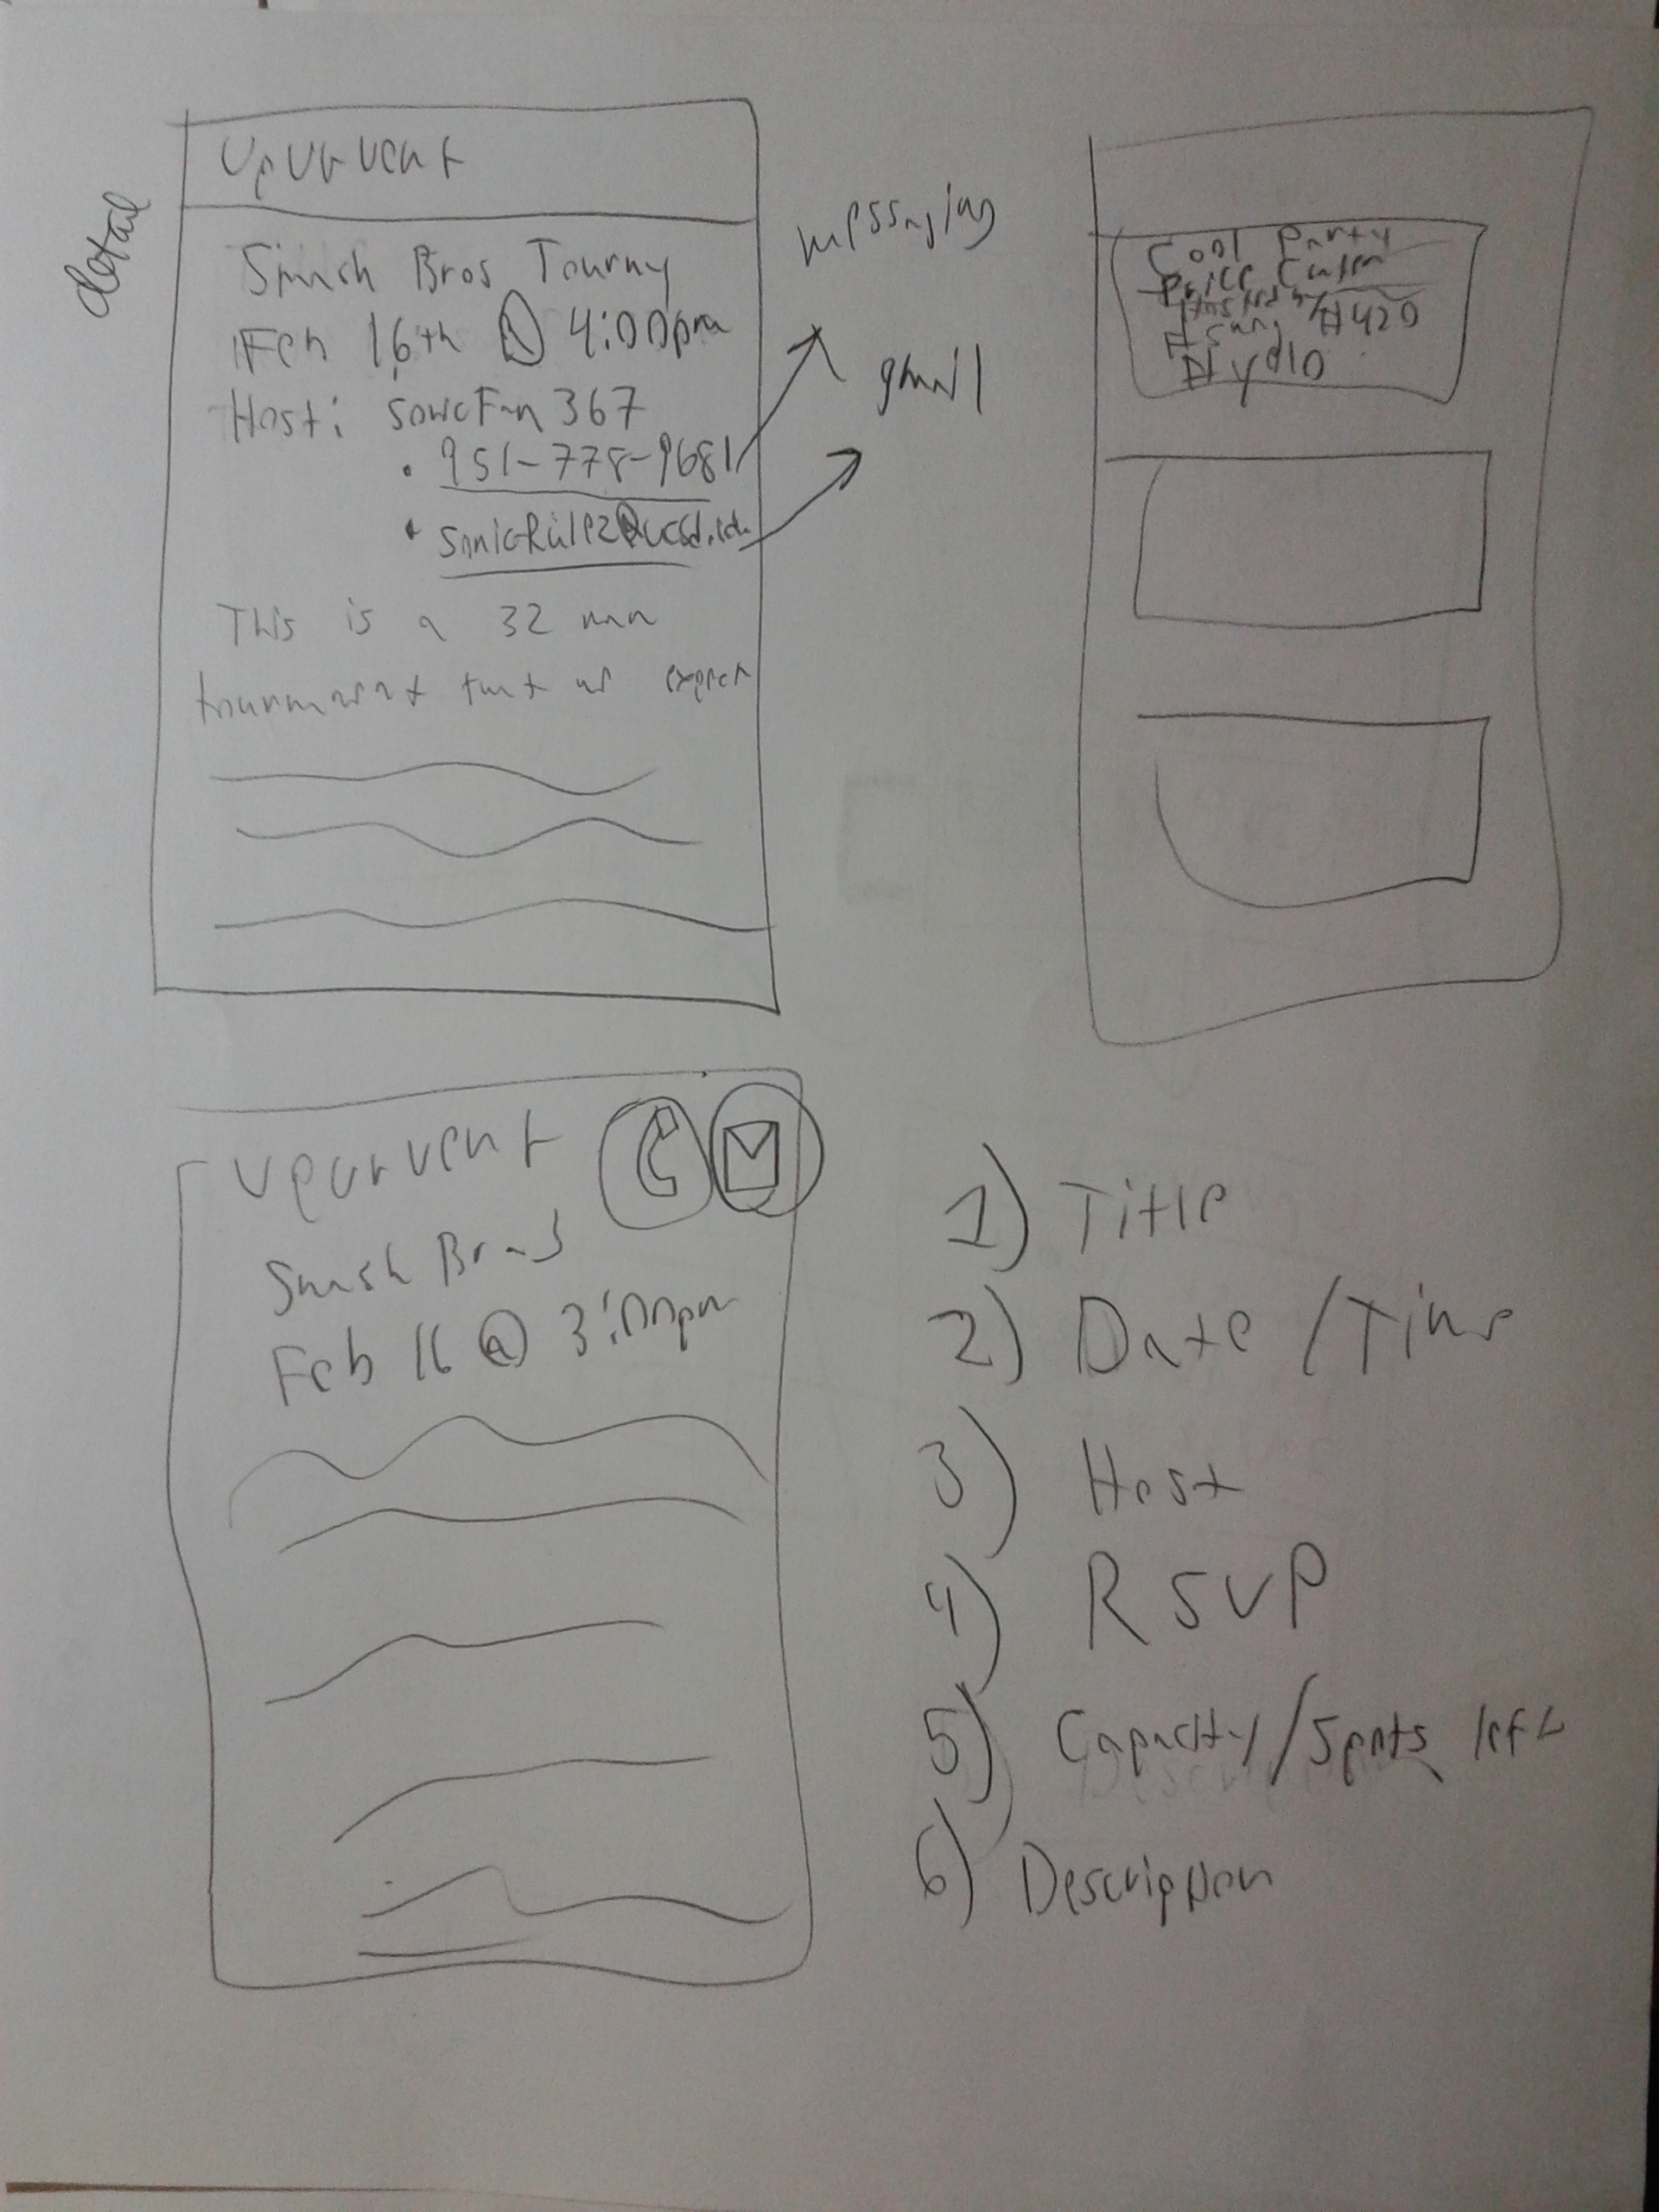 detail
UpUrvent
Smash Bros Tourny
Feb 16th @ 4:00pm
Host: sonicFan 367
• 951-778-9681
• sonicRulez@ucsd.edu
This is a 32 man
tournament that we expect
messaging
gmail
Cool Party
Price Center
Hosted by
#420
#yolo
UpUrvent
Smash Bros
Feb 16 @ 3:00pm
1) Title
2) Date /Time
3) Host
4) RSVP
5) Capacity/Spots left
6) Description